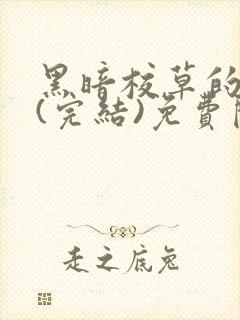 黑暗校草的
(完結)免費
走之底兔